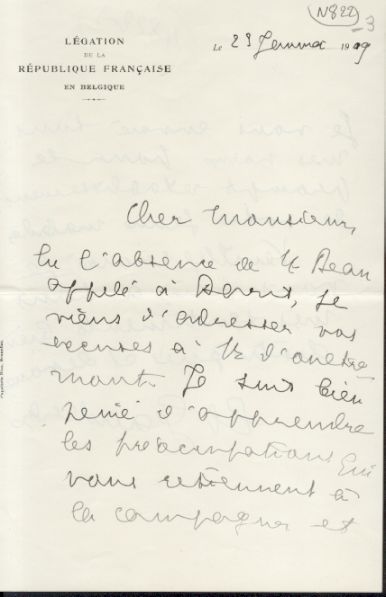 N822
3
LÉGATION
DE LA
RÉPUBLIQUE FRANÇAISE
EN BELGIQUE
Le 29 Janvier 1909
Cher Monsieur,
Vu l'absence de M Beau
appelé à Paris, je
viens d'adresser vos
excuses à M d'Outre
mont. Je suis bien
peiné d'apprendre
les préoccupations qui
vous retiennent à
la campagne et